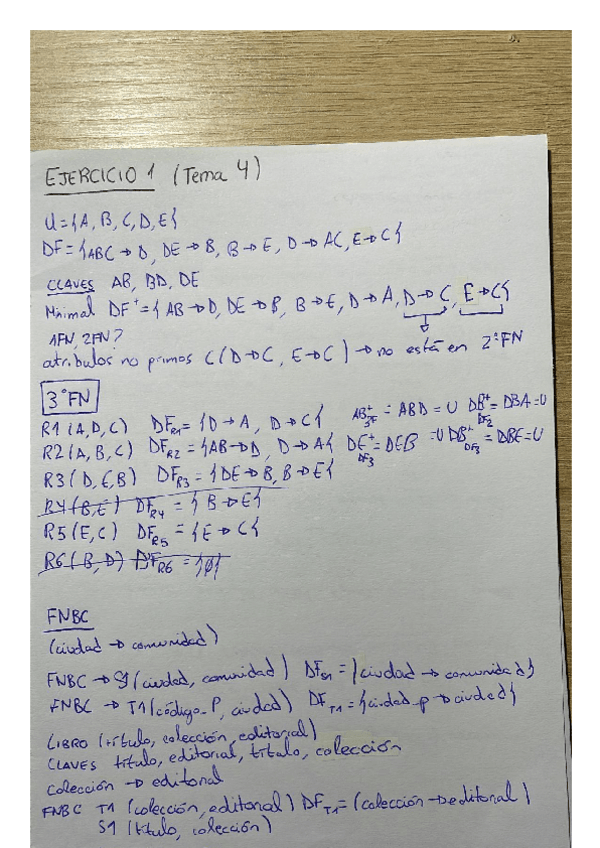 EJERCICIO 1 (Tema 4)
U={A, B, C, D, E}
DF={ABC→D, DE→B, B→E, D→AC, E→C}
CLAVES AB, BD, DE
Minimal DF⁺={AB→D, DE→B, B→E, D→A, D→C, E→C}
1FN, 2FN?
atributos no primos C (D→C, E→C) → no está en 2ªFN
3ªFN
R1 (A, D, C) DF_R1={D→A, D→C} AB⁺ = ABD = U DB⁺ = DBA = U
R2 (A, B, C) DF_R2={AB→D, D→A} DE⁺ = DEB = U DB⁺ = DBE = U
R3 (D, E, B) DF_R3={DE→B, B→E}
R4 (B, E) DF_R4={B→E}
R5 (E, C) DF_R5={E→C}
R6 (B, D) DF_R6={∅}
FNBC
(ciudad → comunidad)
FNBC → S1 (ciudad, comunidad) DF_S1={ciudad → comunidad}
FNBC → T1 (código_P, ciudad) DF_T1={ciudad_p → ciudad}
LIBRO (título, colección, editorial)
CLAVES título, editorial, título, colección
colección → editorial
FNBC T1 (colección, editorial) DF_T1=(colección → editorial)
S1 (título, colección)